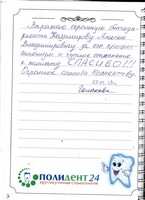 Выражаю огромную благода-
рность Казимирову Алексею
Владимировичу за его профес-
сионализм и чуткое отношение
к пациенту. СПАСИБО!!!
Огромное спасибо Коллективу.
ПОЛИДЕНТ24
круглосуточная стоматология